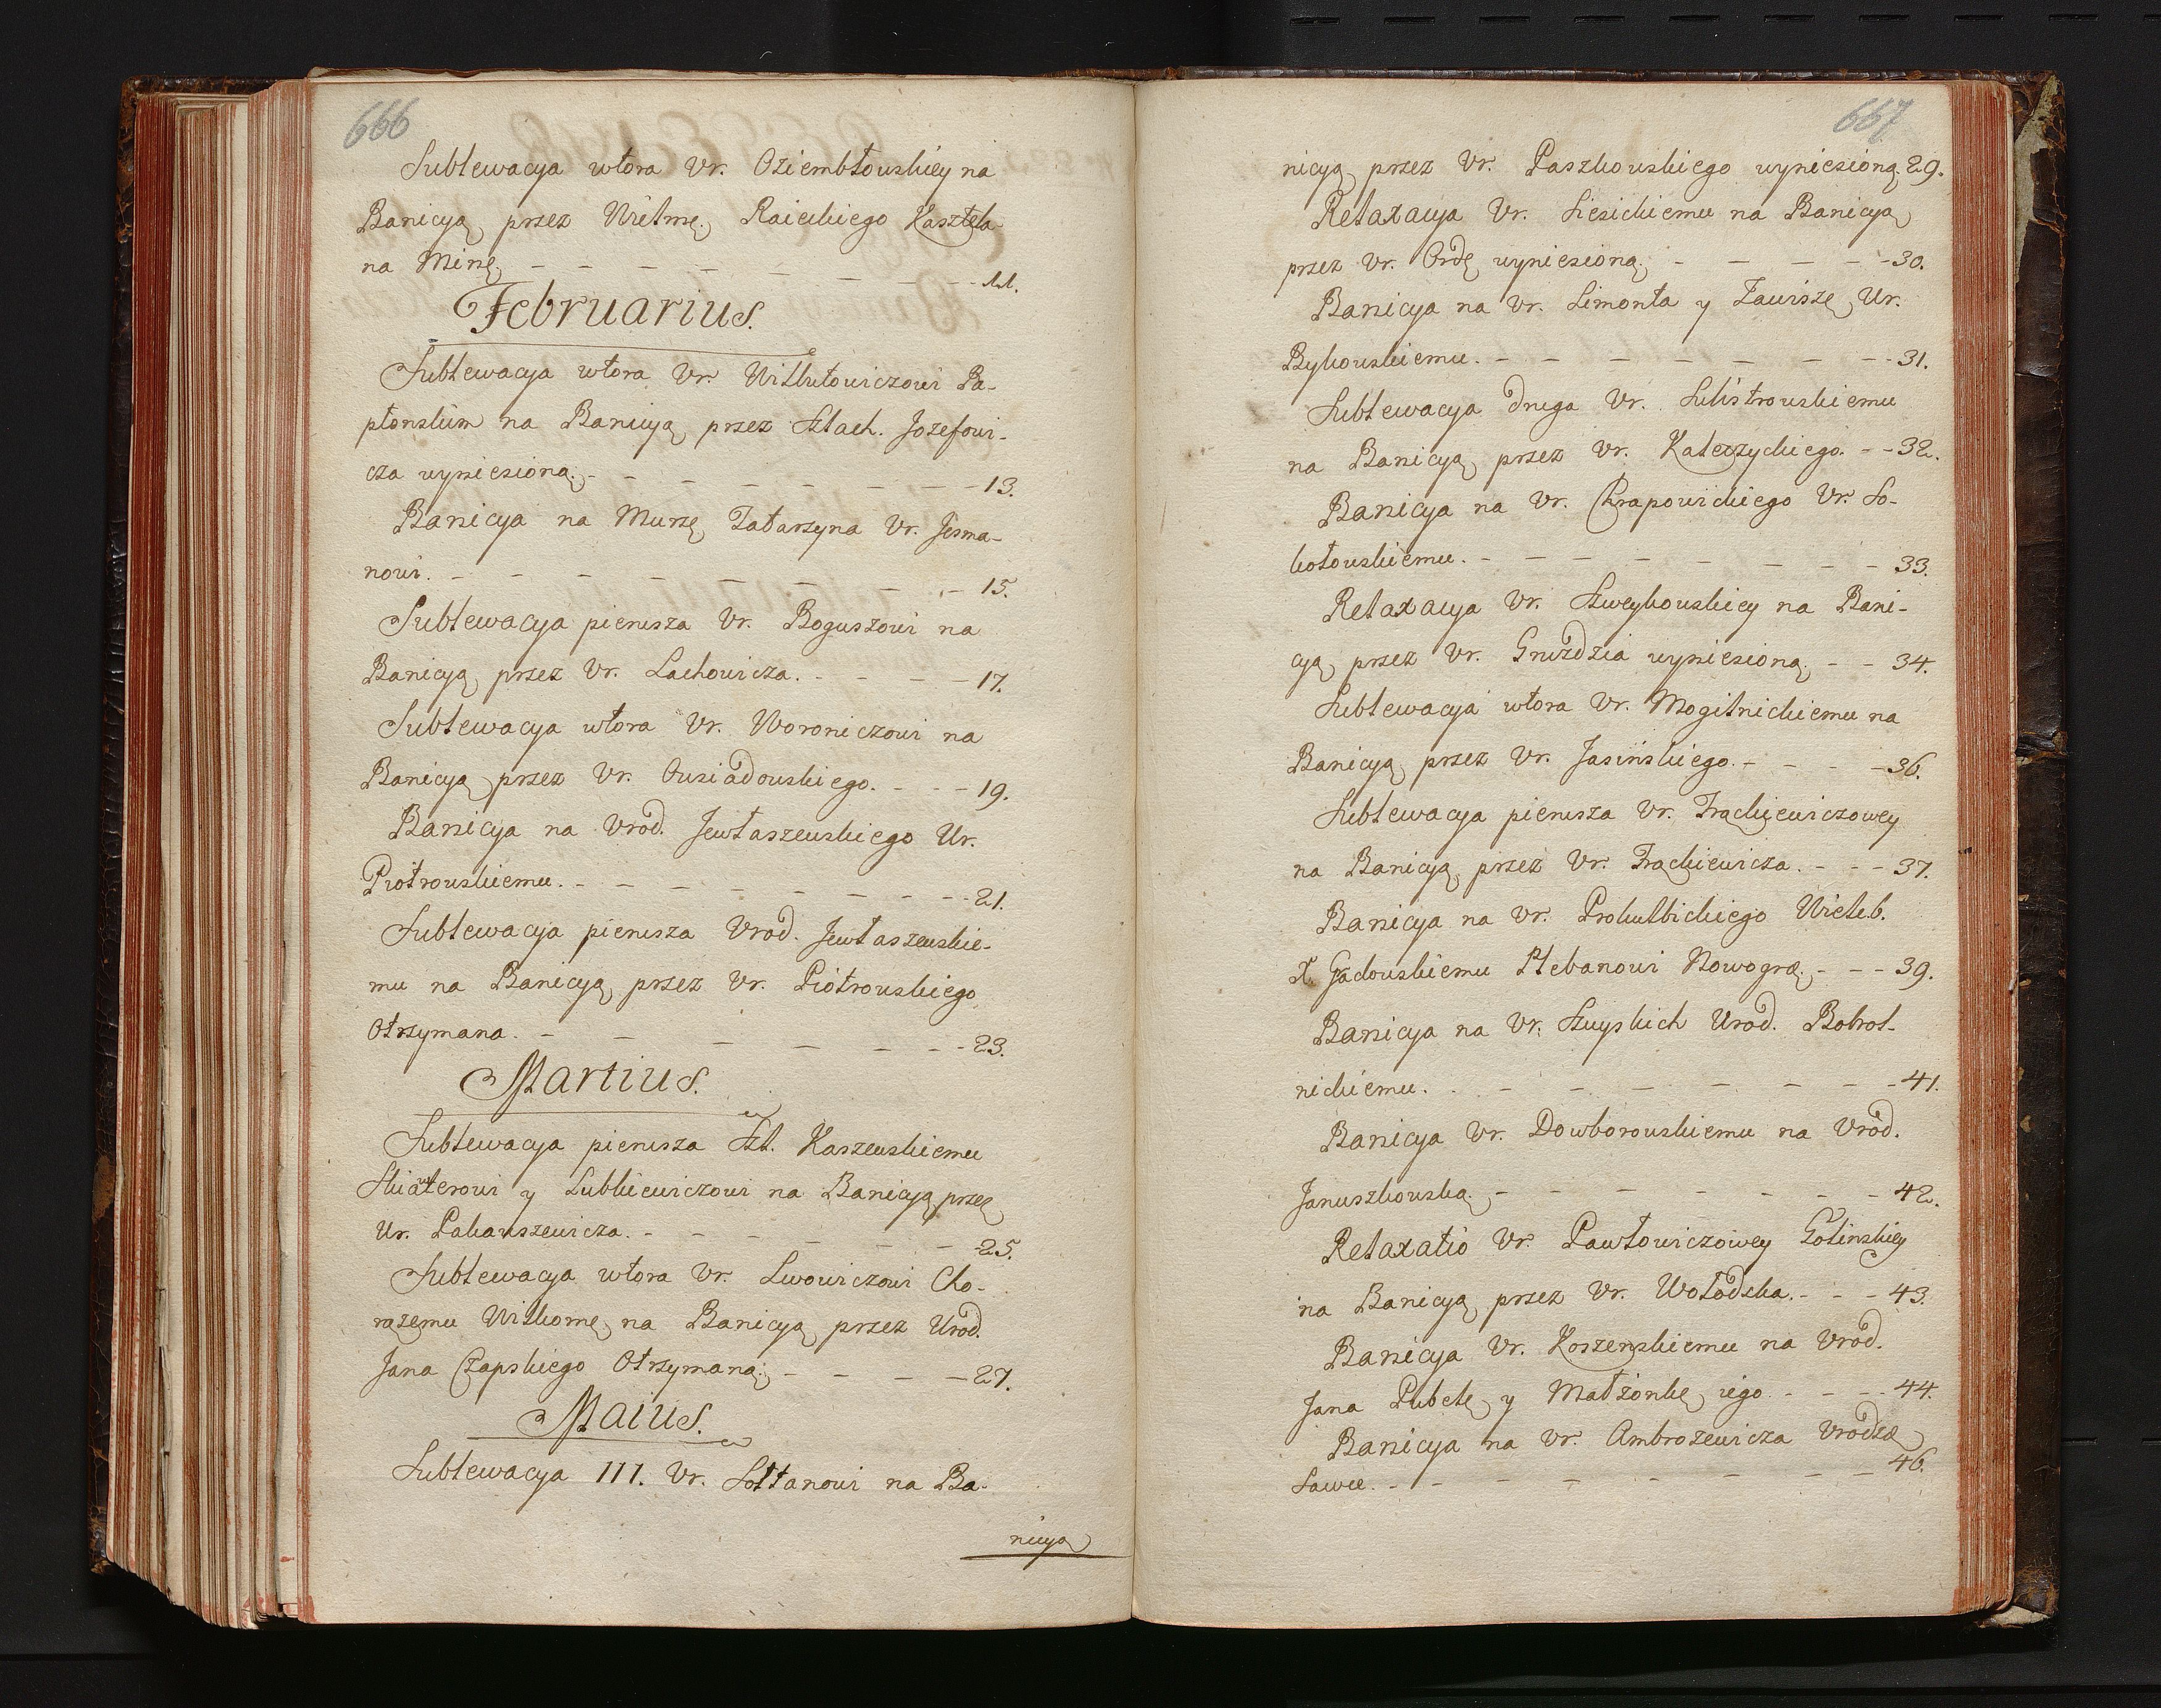 666
Sublewacya wtora Ur. Oziembłowskiey na
Banicyą przez Wielmę. Raieckiego Kasztela-
na Minę. - - - - - - - 11.
Februarius.
Sublewacya wtora Ur. Witkutowiczowi Pa-
płonskim na Banicyą przez Szlach. Jozefowi-
cza wyniesioną. - - - - - - - 13.
Banicya na Murzę Tatarzyna Ur. Jesma-
nowi. - - - - - - - - 15.
Sublewacya pierwsza Ur. Boguszowi na
Banicyą przez Ur. Lachowicza. - - - - 17.
Sublewacya wtora Ur. Woroniczowi na
Banicyą przez Ur. Owsiadowskiego. - - - 19.
Banicya na Urod. Jewłaszewskiego Ur.
Piotrowskiemu. - - - - - - - - 21.
Sublewacya pierwsza Urod. Jewłaszewskie-
mu na Banicyą przez Ur. Piotrowskiego
Otrzymana. - - - - - - - 23.
Martius.
Sublewacya pierwsza Szl. Kaszewskiemu
y Lubkiewiczowi na Banicyą przez
Ur. Pakauszewicza. - - - - - - 25.
Sublewacya wtora Ur. Lwowiczowi Cho-
rązemu Wilkomę. na Banicyą przez Urod.
Jana Czapskiego Otrzymaną. - - - - 27.
Maius.
Sublewacya III. Ur. Sołtanowi na Ba-
nicyą
667
nicyą przez Ur. Paszkowskiego wyniesioną. 29.
Relaxacya Ur. Siesickiemu na Banicyą
przez Ur. Ordę wyniesioną. - - - - - 30.
Banicya na Ur. Limonta y Zawiszę Ur.
Bykowskiemu. - - - - - - - - 31.
Sublewacya druga Ur. Sulistrowskiemu
na Banicyą przez Ur. Kateczyckiego. - - 32.
Banicya na Ur. Chrapowickiego Ur. So-
kołowskiemu. - - - - - - - - 33.
Relaxacya Ur. Szweykowskiey na Bani-
cyą przez Ur. Gruzdzia wyniesioną. - - 34.
Sublewacya wtora Ur. Mogilnickiemu na
Banicyą przez Ur. Jasińskiego. - - - - 36.
Sublewacya pierwsza Ur. Frąckiewiczowey
na Banicyą przez Ur. Frąckiewicza. - - - 37.
Banicya na Ur. Prokulbickiego Wieleb.
X. Gadowskiemu Plebanowi Nowogrę. - - - 39.
Banicya na Ur. Szuyskich Urod. Bobrol-
nickiemu. - - - - - - - - 41.
Banicya Ur. Dowborowskiemu na Urod.
Januszkowską. - - - - - - - - 42.
Relaxatio Ur. Pawłowiczowey Golinskiey
na Banicyą przez Ur. Wołodzka. - - - 43.
Banicya Ur. Koszenskiemu na Urod.
Jana Pubclę y Małżonkę iego. - - - - 44.
Banicya na Ur. Ambrozewicza Urodzę
Sawce. - - - - - - - - 46.